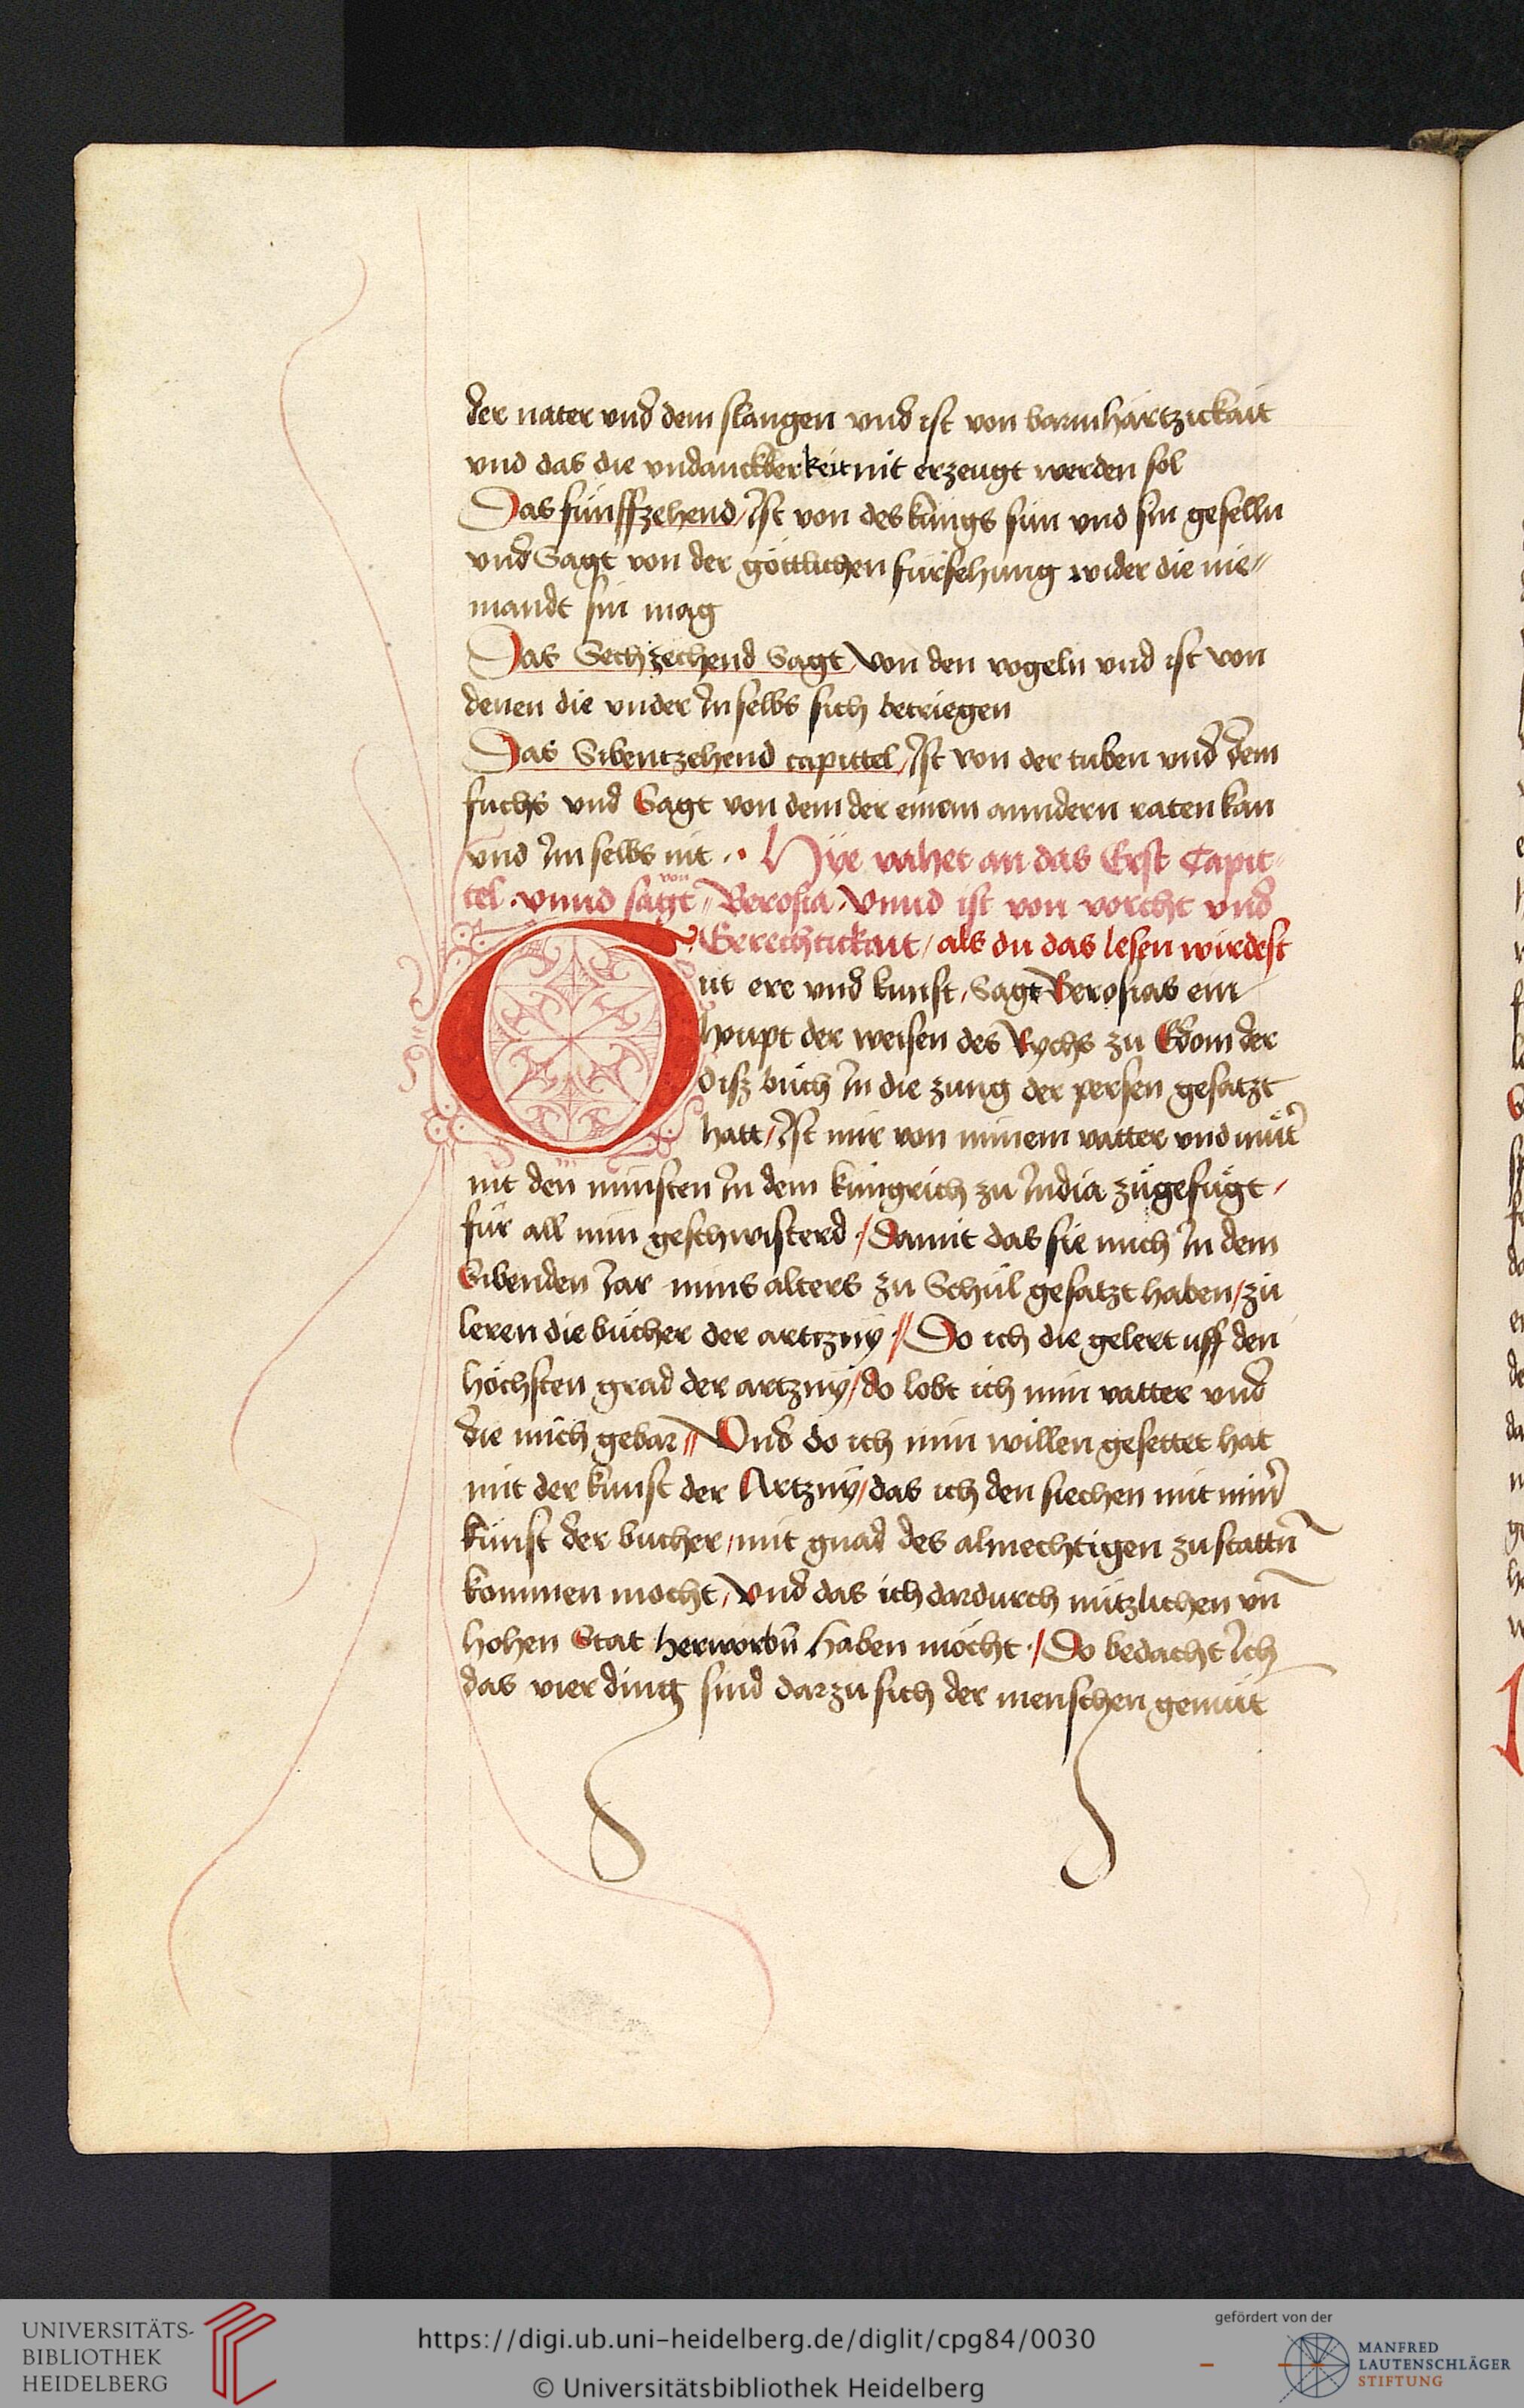 der nater vnd dem slangen vnd ist von barmhärtzickait
vnd das die vndanckberkeit nit erzeugt werden sol
Das fünffzehend / Ist von des künigs sün vnd sin geselln
vnd Sagt von der göttlichen fürsehung wider die nie„
mandt sin mag
Das Sechzechend Sagt / von den vogeln vnd ist von
denen die vnder In selbs sich betriegen
Das Sibentzehend capittel / Ist von der tuben vnd dem
fuchs vnd Sagt von dem der einem anndern raten kan
vnd Im selbs nit . . Hÿe vahet an das Erst Capit„
tel . vnnd sagt von „ Berosia . vnnd ist von vorcht vnd
Gerechtickait / als du das lesen wirdest
Gut ere vnd kunst / Sagt Berosias ein
houpt der weisen des Rychs zu Edom der
disz büch In die zung der persen gesatzt
hatt / Ist mir von minem vatter vnd müt̄
nit den minsten In dem küngrich zu India zůgefůgt /
für all min geschwisterd . / Damit das sie mich In dem
Sibenden Iar mins alters zu Schůl gesatzt haben / zů
leren die bücher der artczny . // Do ich die gelert uff den
höchsten grad der artzny / do lobt ich min vatter vnd
die mich gebar // Vnd do ich min willen gesettet hat
mit der kunst der Artzny / das ich den siechen mit min̄
kunst der bucher / mit gnad des almechtigen zu stattn̄
kommen mocht / Vnd das ich dardurch nützlichen vn̄
hohen Stat herworbn̄ haben möcht . / Do bedacht Ich
das vier ding sind darzu sich der menschen gemüt
UNIVERSITÄTS-
BIBLIOTHEK
HEIDELBERG
https://digi.ub.uni-heidelberg.de/diglit/cpg84/0030
© Universitätsbibliothek Heidelberg
gefördert von der
MANFRED
LAUTENSCHLÄGER
STIFTUNG